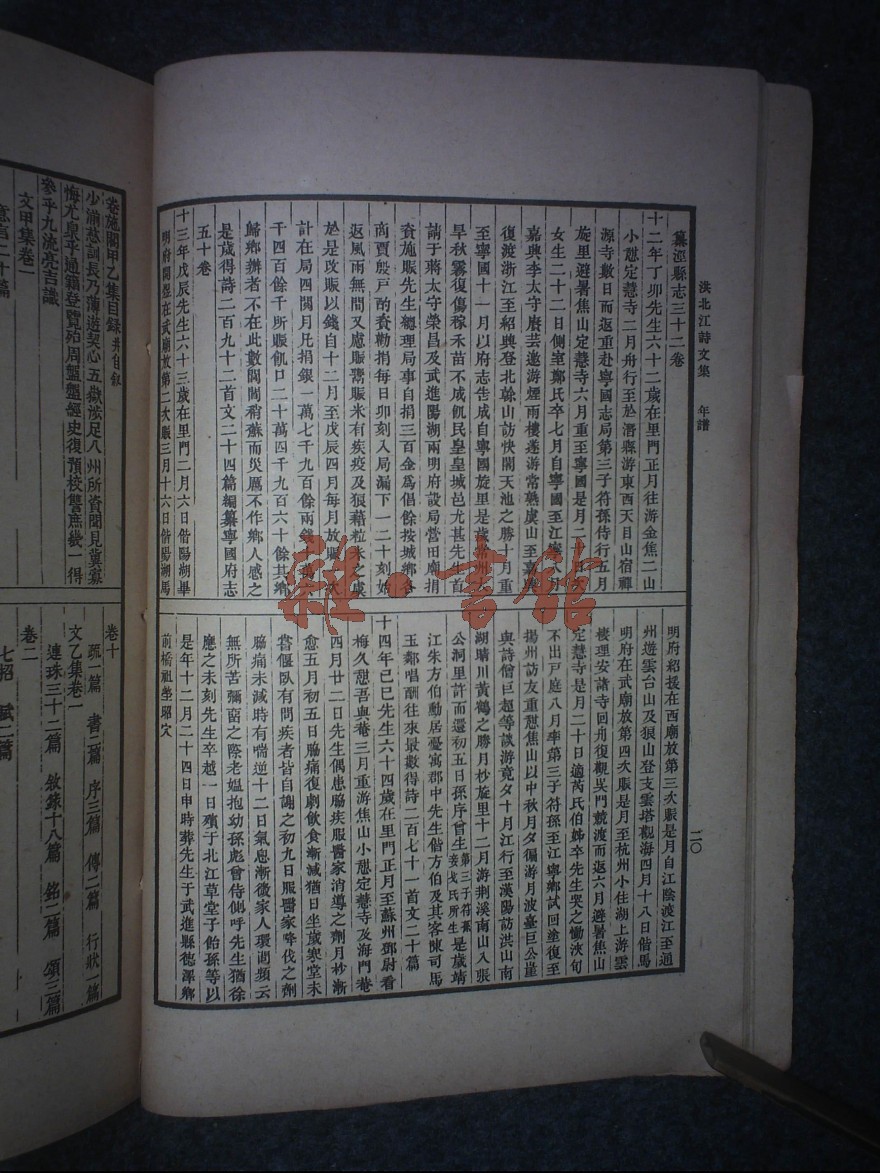 洪北江詩文集　年譜
二〇
纂涇縣志三十二卷
十二年丁卯先生六十二歲在里門正月往游金焦二山
小憩定慧寺二月舟行至於潛縣游東西天目山宿禪
源寺數日而返重赴寧國志局第三子符孫侍行五月
旋里避暑焦山定慧寺六月重至寧國是月二
女生二十二日側室鄭氏卒七月自寧國至江寧
嘉興李太守賡芸邀游煙雨樓遂游常熟虞山至嘉
復渡浙江至紹興登北幹山訪快閣天池之勝十月重
至寧國十一月以府志告成自寧國旋里是歲常州大
旱秋霧復傷稼禾苗不成飢民皇皇城邑尤甚先生首
請于蔣太守榮昌及武進陽湖兩明府設局營田廟捐
賚施賑先生總理局事自捐三百金爲倡餘按城鄉各
商賈殷戶酌賚勸捐每日卯刻入局漏下一二十刻始
返風雨無間又慮賑鬻賑米有疾疫及狼藉粒米之虞
於是改賑以錢自十二月至戊辰四月每月放賑
計在局四閱月凡捐銀一萬七千九百餘兩錢
千四百餘千所賑飢口二十萬四千九百六十餘其
歸鄉辦者不在此數閭閻稍蘇而災厲不作鄉人感之
是歲得詩二百九十二首文二十四篇編纂寧國府志
五十卷
十三年戊辰先生六十三歲在里門二月六日偕陽湖畢
明府開煜在武廟放第二次賑三月十六日偕陽湖馬
明府紹援在西廟放第三次賑是月自江陰渡江至通
州遊雲台山及狼山登支雲塔觀海四月十八日偕馬
明府在武廟放第四次賑是月至杭州小住湖上游雲
棲理安諸寺回舟復觀吳門競渡而返六月避暑焦山
定慧寺是月二十日適芮氏伯姊卒先生哭之慟浹旬
不出戸庭八月率第三子符孫至江寧鄉試回塗復至
揚州訪友重憩焦山以中秋月夕偏游月波臺巨公崖
與詩僧巨超等談游竟夕十月江行至漢陽訪洪山南
湖晴川黃鶴之勝月杪旋里十二月游荆溪南山入張
公洞里許而還初五日孫序曾生第三子符孫妾戈氏所生是歲靖
江朱方伯勳居憂寓郡中先生偕方伯及其客陳司馬
玉鄰唱酬往來最數得詩二百七十一首文二十篇
十四年己巳先生六十四歲在里門正月至蘇州鄧尉看
梅久憩吾與菴三月重游焦山小憩定慧寺及海門菴
四月廿二日先生偶患脇疾服醫家消導之劑月杪漸
愈五月初五日脇痛復劇飲食漸減猶日坐歲寒堂未
嘗偃臥有問疾者皆自謝之初九日服醫家降伐之劑
脇痛未減時有喘逆十二日氣息漸微家人環泣頻云
無所苦彌留之際老嫗抱幼孫彪曾侍側呼先生猶徐
應之未刻先生卒越一日殯于北江草堂子飴孫等以
是年十二月二十四日申時葬先生于武進縣德澤鄉
前橋祖塋昭穴
卷施閣甲乙集目録并自叙
少漸慈訓長乃薄遊契心五嶽涉足八州所資聞見冀寡
悔尤泉乎通籍登覽殆周盤盤經史復預校讐庶幾一得
參乎九流亮吉識
文甲集卷一
意言二十篇
卷十
疏一篇　書二篇　序三篇　傳二篇　行狀一篇
文乙集卷一
連珠三十二篇　敘錄十八篇　銘一篇　頌三篇
卷二
七招　賦二篇
雜·書館